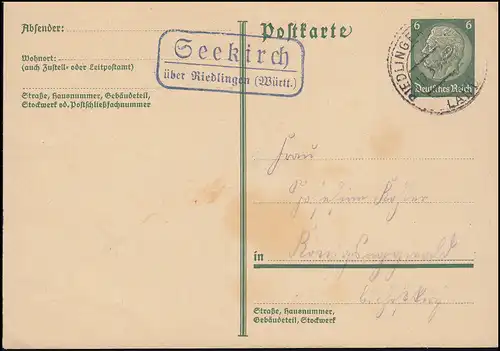 Absender:
Wohnort:
(auch Zustell- oder Leitpostamt)
Straße, Hausnummer, Gebäudeteil,
Stockwerk od. Postschließfachnummer
Postkarte
Seekirch
über Riedlingen (Württ.)
6 6
Deutsches Reich
RIEDLINGE
LAND
Frau
in
Straße, Hausnummer,
Gebäudeteil, Stockwerk